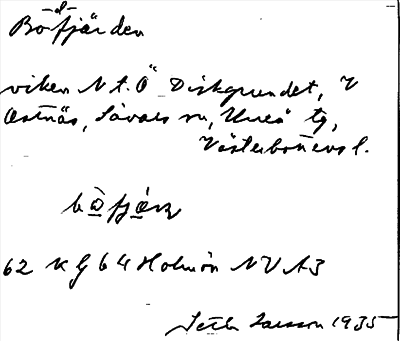 -d-
Bo fjärden
viken N t. Ö Diskgrundet, V
Ostnäs, Sävars sn, Umeå tg,
Västerbottens l.
62 K G 64 Holmön NV A3
Seth Larsson 1935